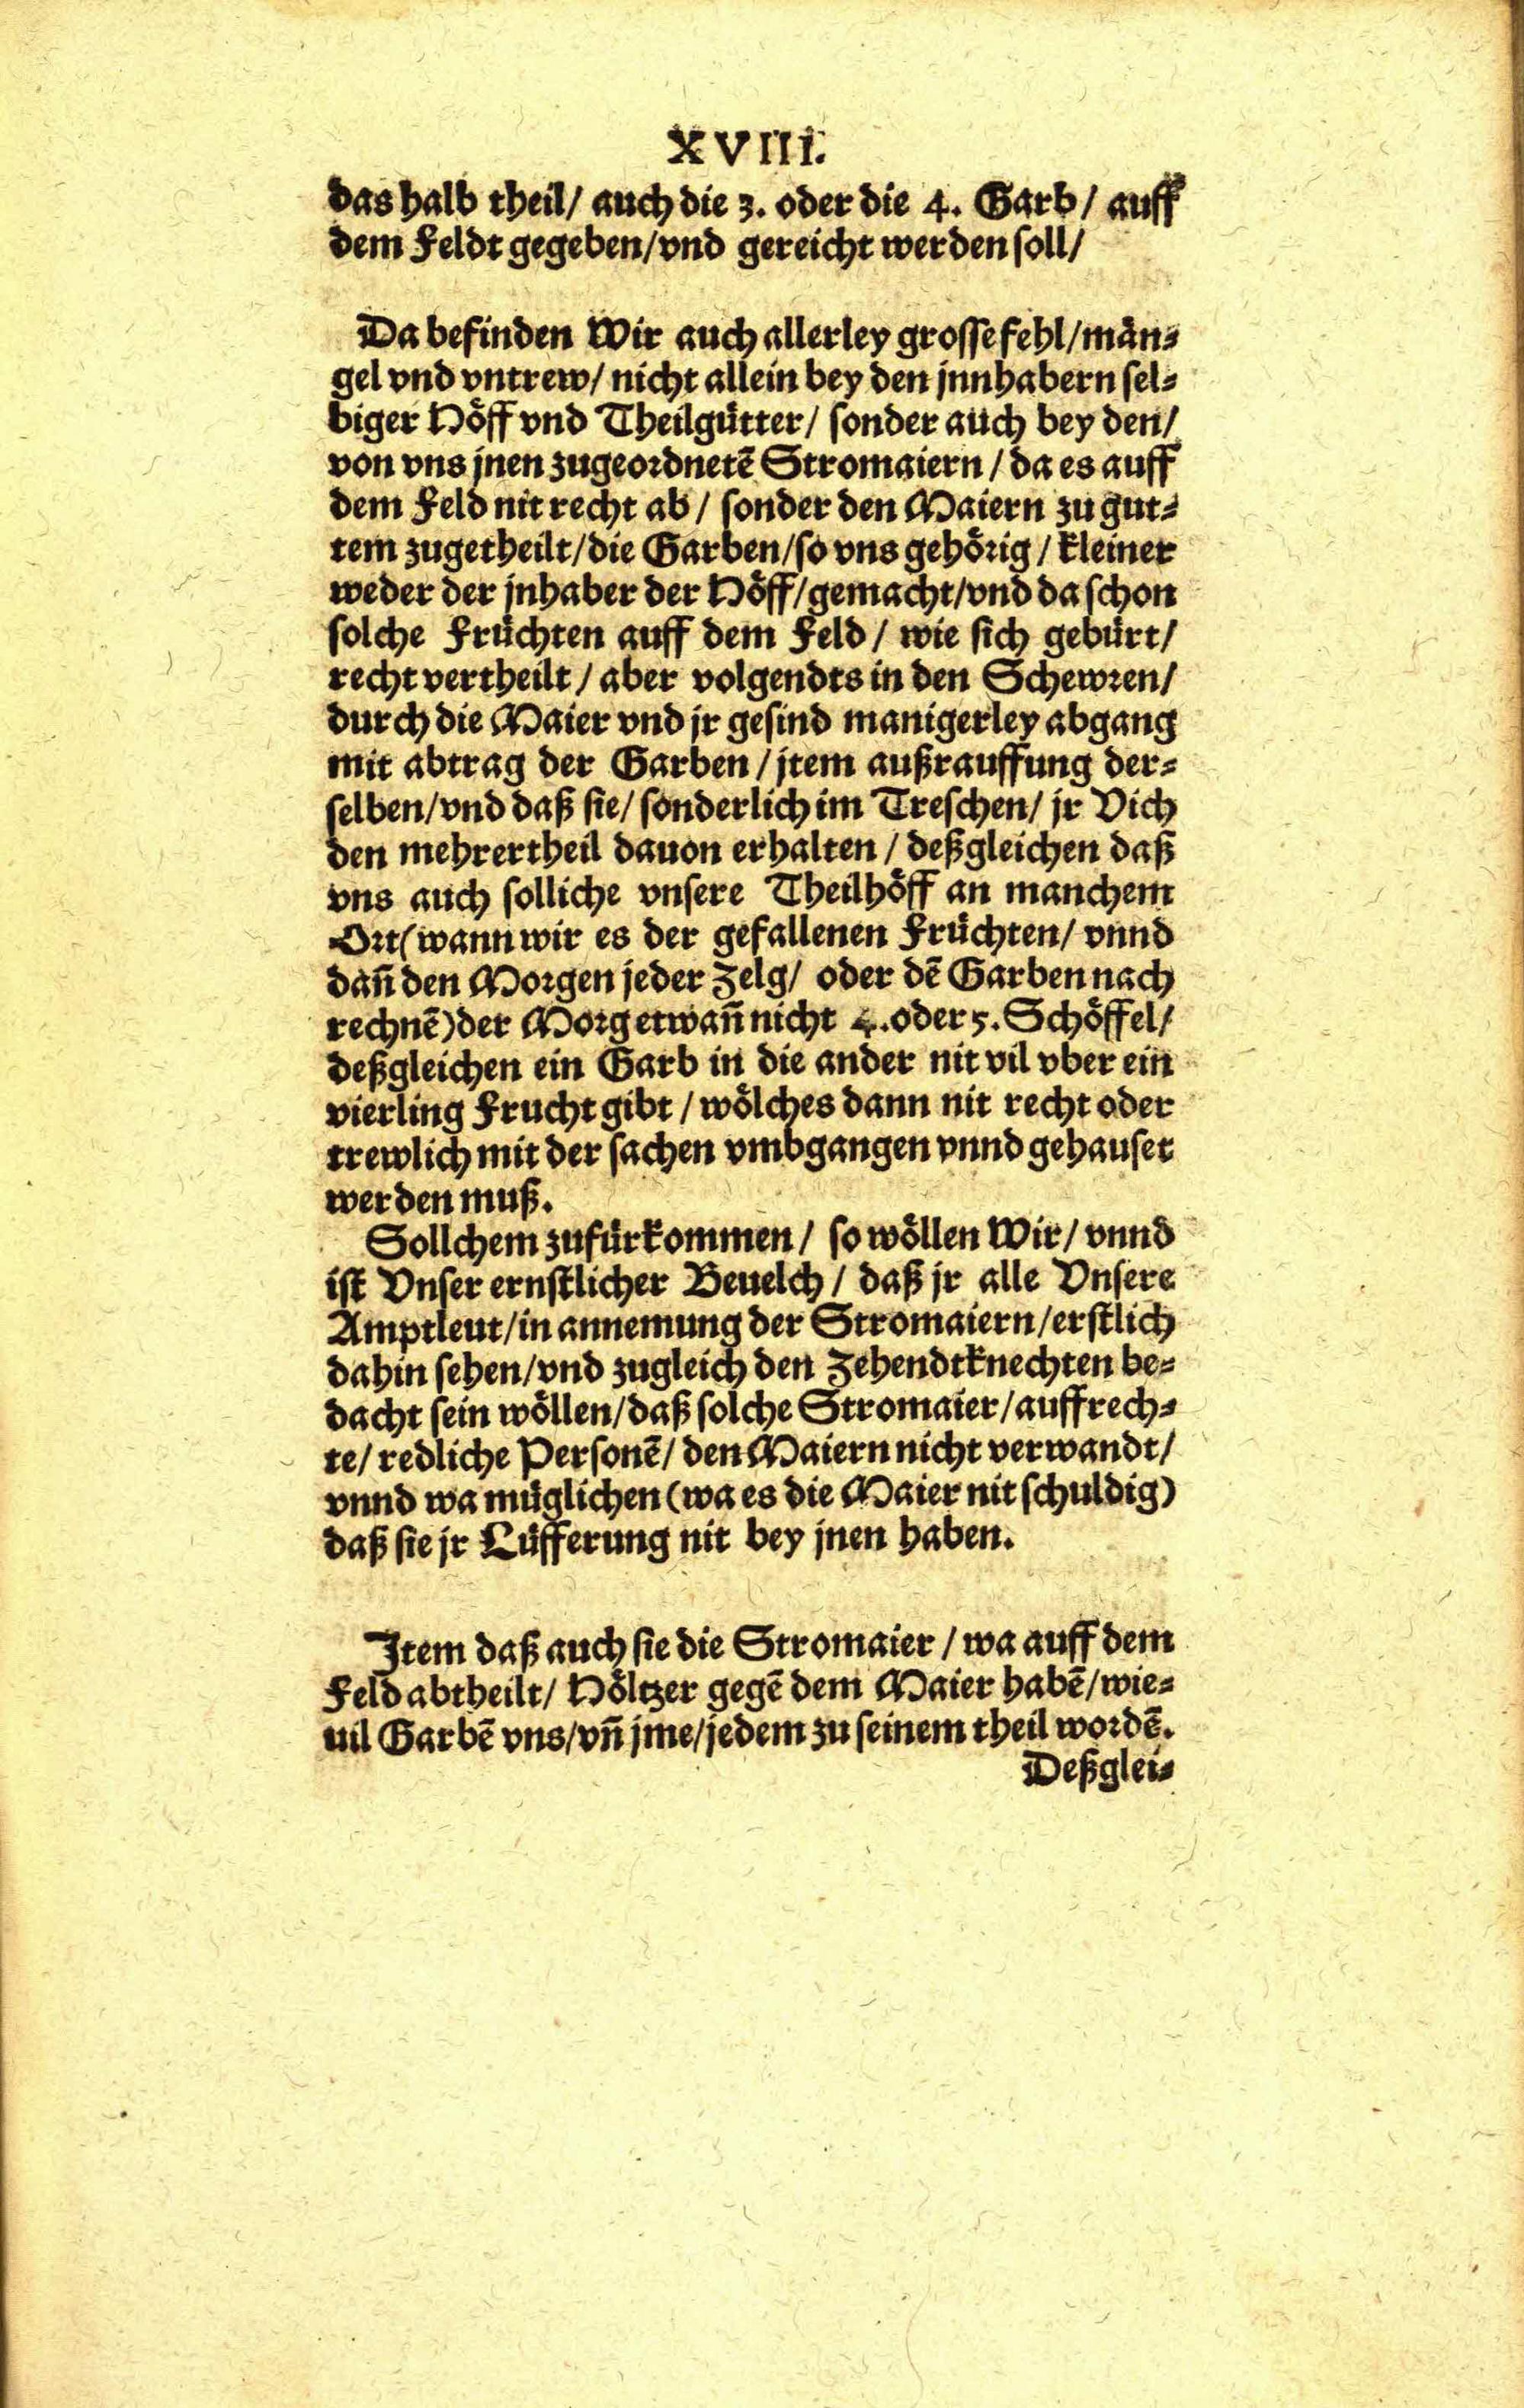 XVIII.
das halb theil/ auch die 3. oder die 4. Garb/ auff
dem Feldt gegeben/vnd gereicht werden soll/
Da befinden Wir auch allerley grosse fehl/män⸗
gel vnd vntrew/ nicht allein bey den jnnhabern sel⸗
biger Höff vnd Theilgütter/ sonder auch bey den/
von vns jnen zugeordnetē Stromaiern/da es auff
dem Feld nit recht ab/ sonder den Maiern zu gut⸗
tem zugetheilt/die Garben/so vns gehörig/kleiner
weder der jnhaber der Höff/gemacht/vnd da schon
solche Früchten auff dem Feld/ wie sich gebürt/
recht vertheilt/ aber volgendts in den Schewren/
durch die Maier vnd jr gesind manigerley abgang
mit abtrag der Garben/jtem außrauffung der⸗
selben/vnd daß sie/ sonderlich im Treschen/ jr Vich
den mehrertheil dauon erhalten/ deßgleichen daß
vns auch solliche vnsere Theilhöff an manchem
Ort(wann wir es der gefallenen Früchten/ vnnd
dañ den Morgen jeder Zelg/ oder dē Garben nach
rechnē)der Morg etwañ nicht 4.oder 5. Schöffel/
deßgleichen ein Garb in die ander nit vil vber ein
vierling Frucht gibt/ wölches dann nit recht oder
trewlich mit der sachen vmbgangen vnnd gehauset
werden muß.
Sollchem zufürkommen/ so wöllen Wir/ vnnd
ist Vnser ernstlicher Beuelch/ daß jr alle Vnsere
Amptleut/in annemung der Stromaiern/erstlich
dahin sehen/vnd zugleich den Zehendtknechten be⸗
dacht sein wöllen/daß solche Stromaier/auffrech⸗
te/ redliche Personē/ den Maiern nicht verwandt/
vnnd wa müglichen(wa es die Maier nit schuldig)
daß sie jr Lüfferung nit bey jnen haben.
Jtem daß auch sie die Stromaier/ wa auff dem
Feld abtheilt/ Höltzer gegē dem Maier habē/wie⸗
uil Garbē vns/vñ jme/jedem zu seinem theil wordē.
Deßglei⸗